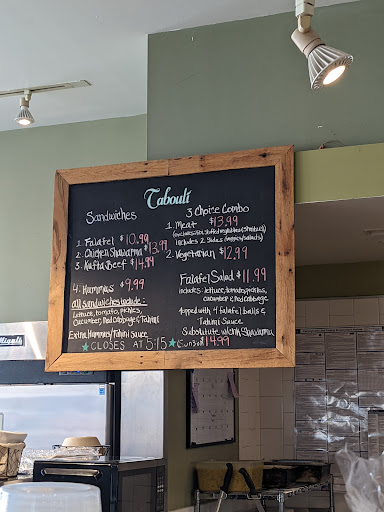 Tabouli
Sandwiches
1. Falafel $10.99
2. Chicken Shawarma $13.99
3. Kafta Beef $14.99
4. Hummus $9.99
all sandwiches include:
Lettuce, tomato, pickles,
Cucumber, Red Cabbage & Tahini
Extra Hummus/Tahini Sauce
★CLOSES AT 5:15★
3 Choice Combo
1. Meat $13.99
includes 2 Sides
2. Vegetarian $12.99
Falafel Salad $11.99
includes: lettuce, tomatoes, pickles,
cucumber & Red Cabbage
topped with 4 falafel balls &
Tahini Sauce
Substitute with Shawarma
$14.99